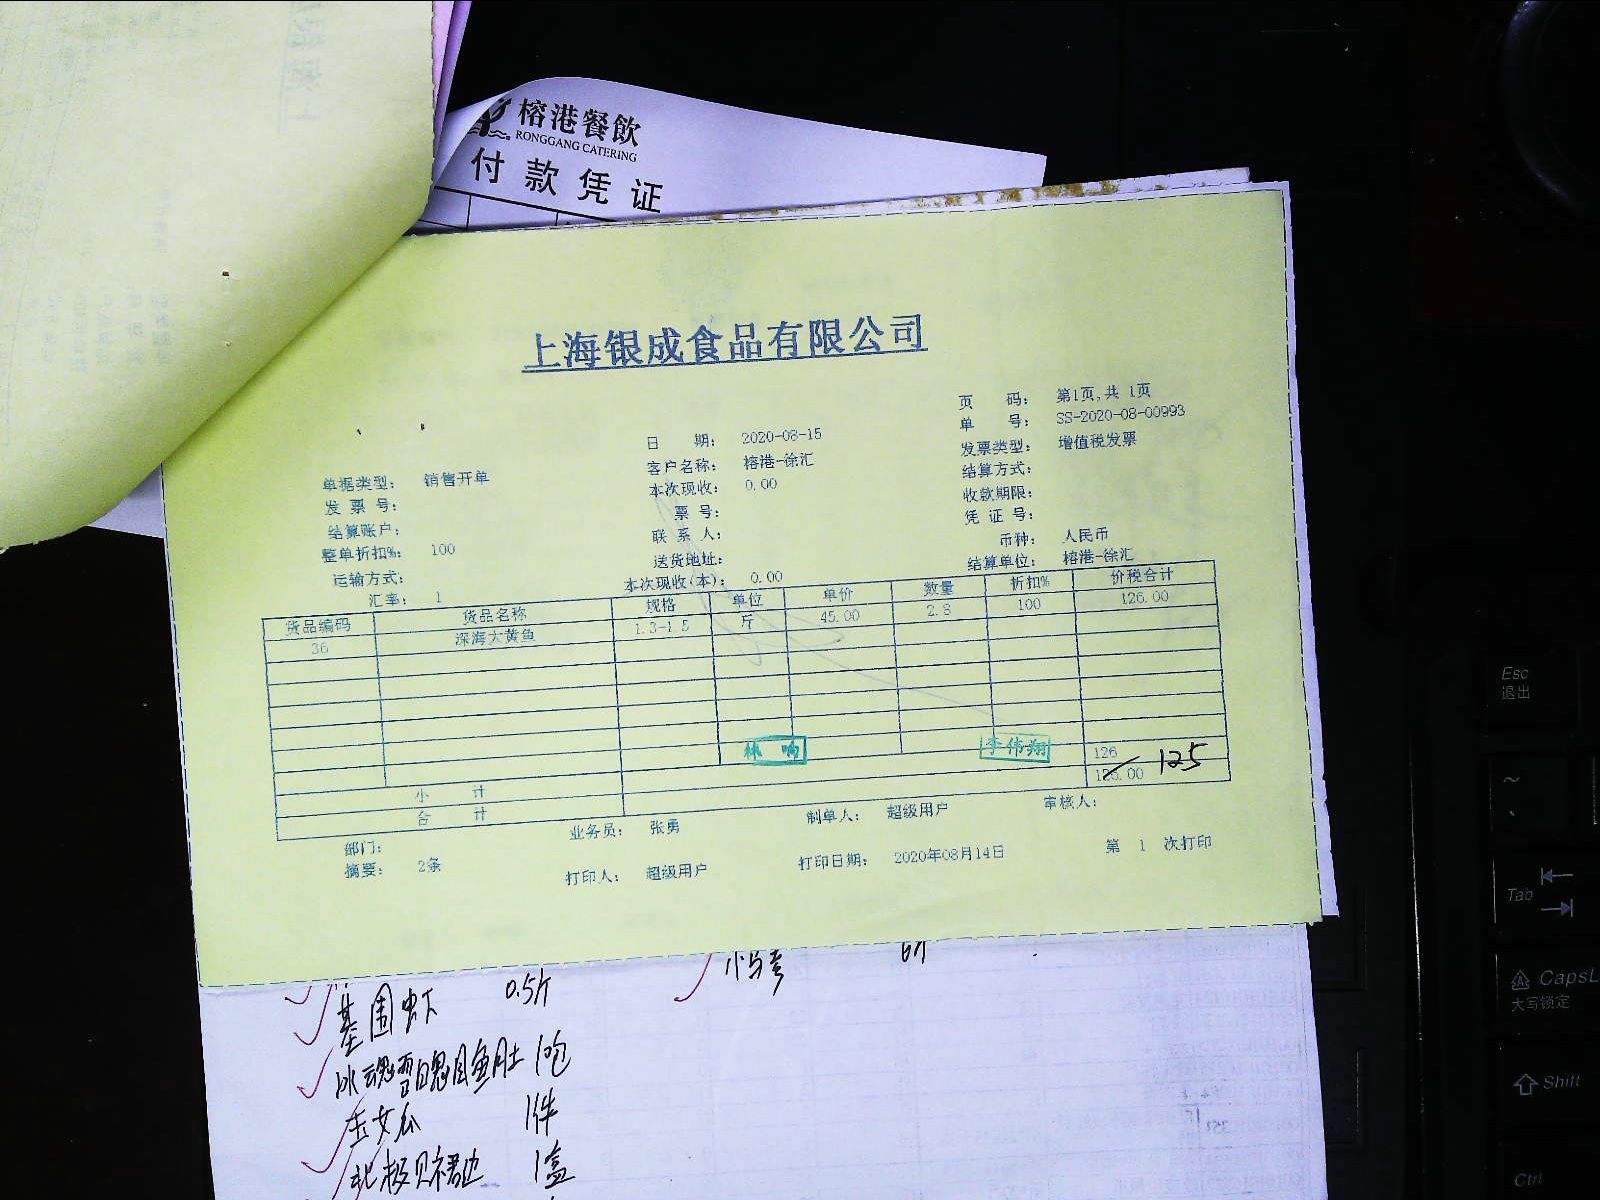 榕港餐飲
RONGGANG CATERING
付款凭证
上海银成食品有限公司
页 码： 第1页,共 1页
单 号： SS-2020-08-00993
日 期： 2020-08-15
发票类型： 增值税发票
客户名称： 榕港-徐汇
结算方式：
单据类型： 销售开单
本次现收： 0.00
收款期限：
发 票 号：
票 号：
凭 证 号：
结算账户：
联 系 人：
币种： 人民币
整单折扣%： 100
送货地址：
结算单位： 榕港-徐汇
运输方式：
本次现收(本)： 0.00
汇率： 1
货品编码 货品名称 规格 单位 单价 数量 折扣% 价税合计
36 深海大黄鱼 1.3-1.5 斤 45.00 2.8 100 126.00
林 响 李伟翔
小 计 126
合 计 126.00 125
部门： 业务员： 张勇 制单人： 超级用户 审核人：
摘要： 2条 打印人： 超级用户 打印日期： 2020年08月14日 第 1 次打印
基围虾 0.5斤
1包
玉女瓜 1件
北极贝裙边 1盒
Esc
退出
~
Tab
CapsL
大写锁定
Shift
Ctrl